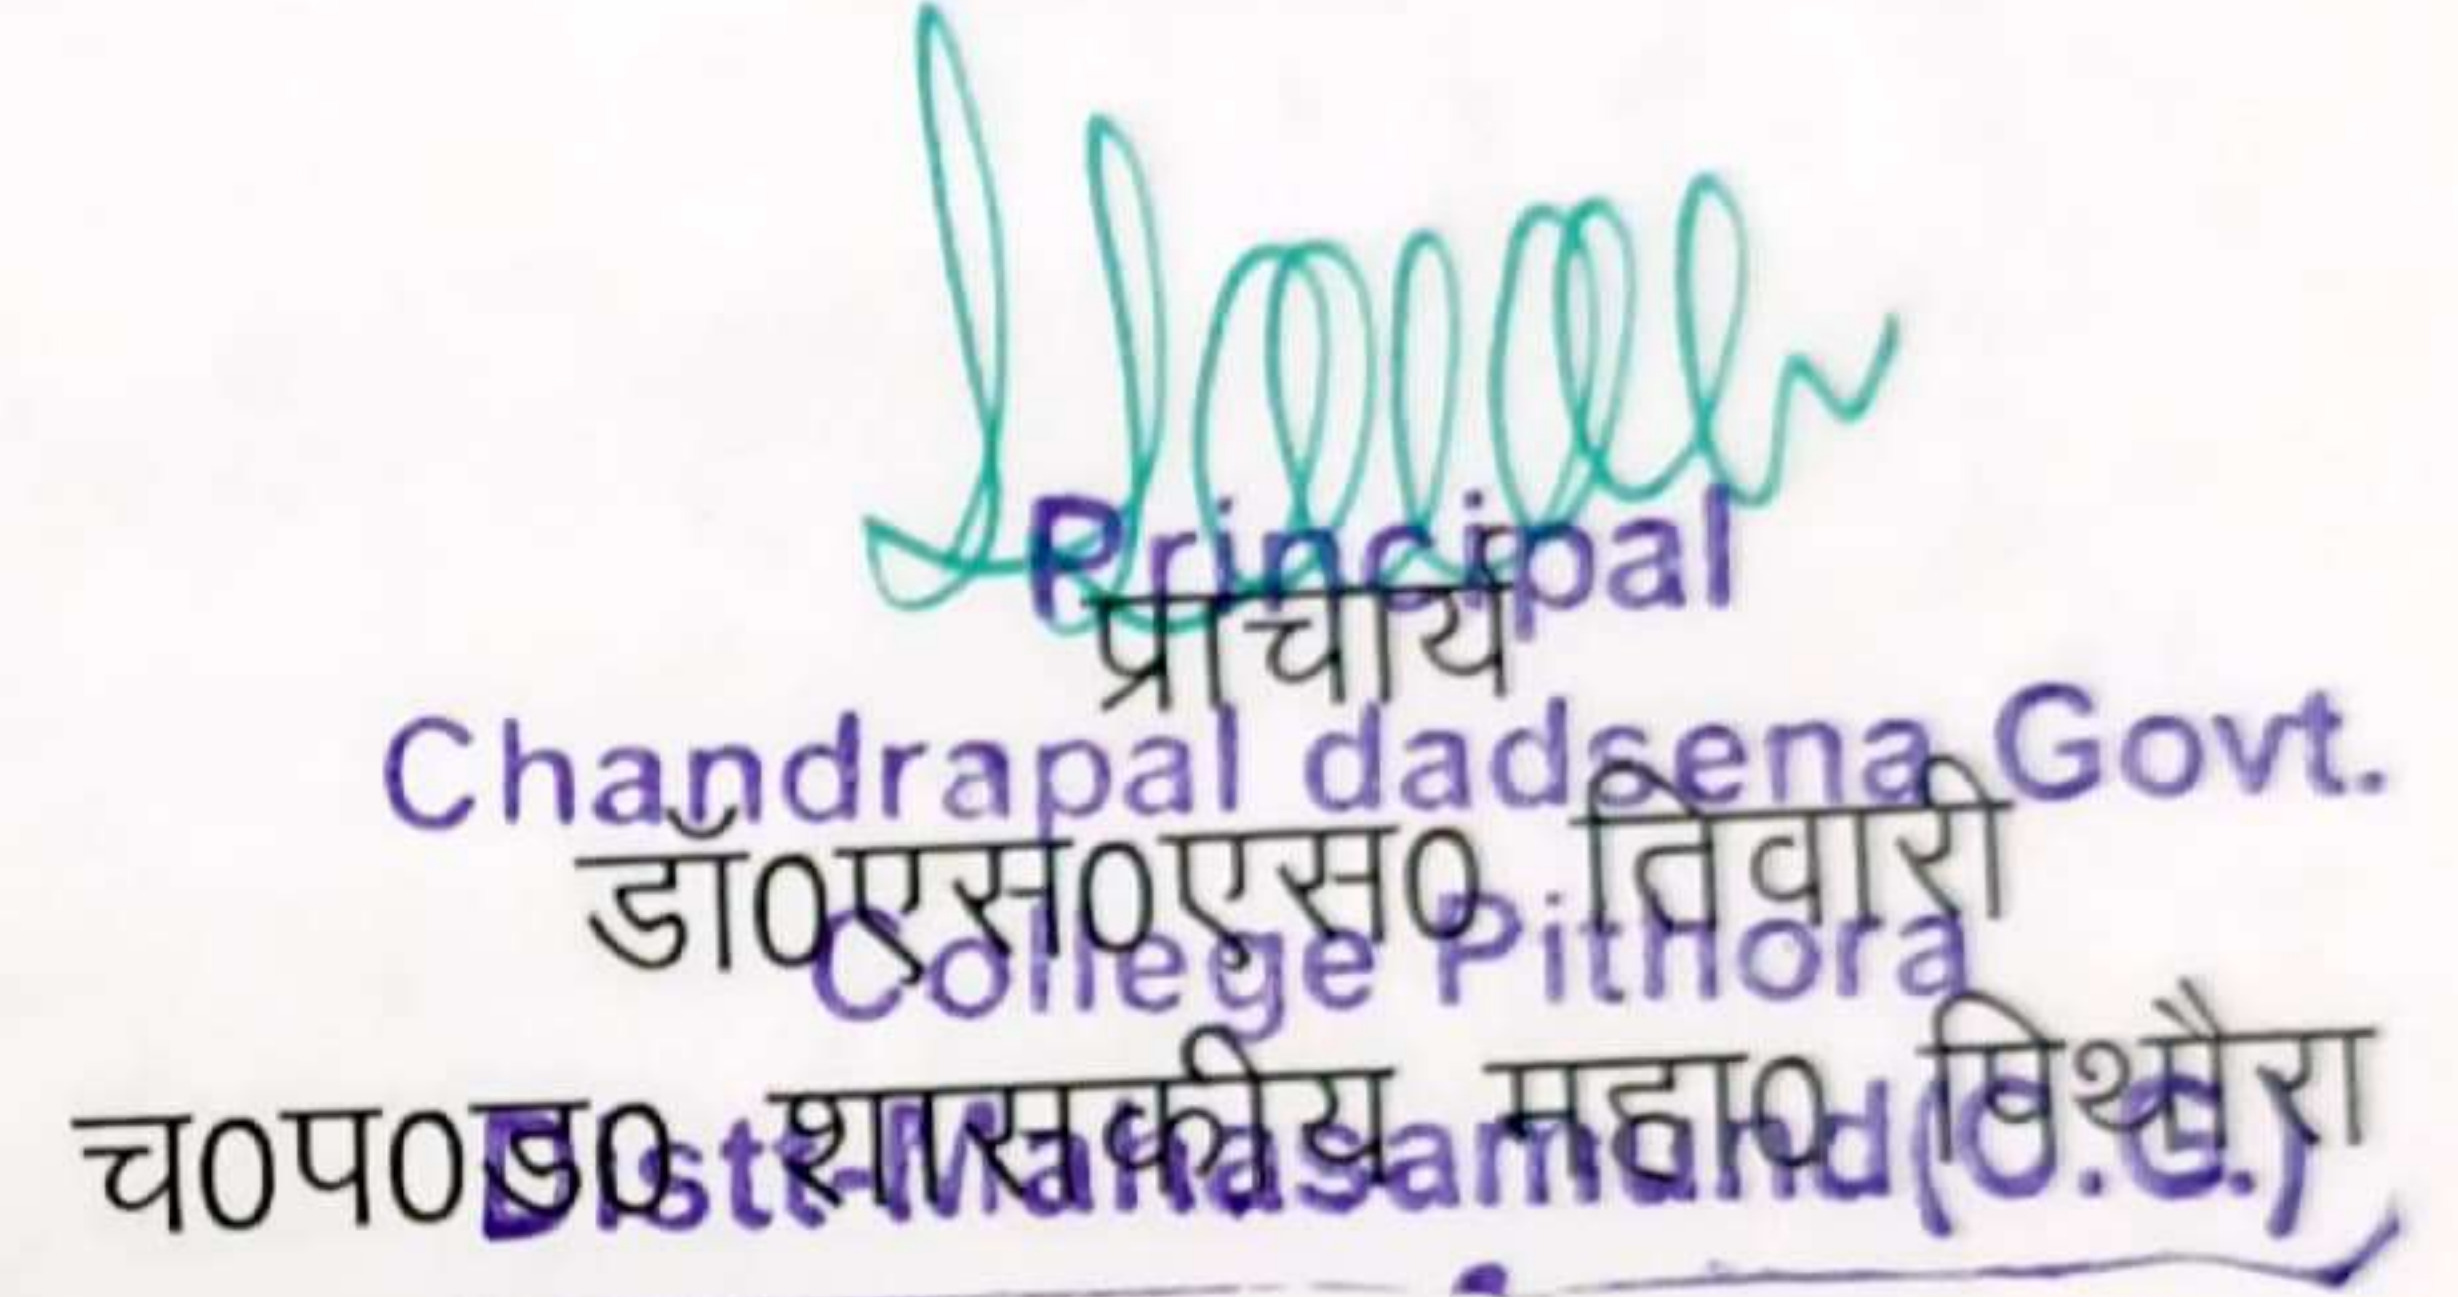 Principal
प्राचार्य
Chandrapal dadsena Govt.
डॉ0एस0एस0 तिवारी
College Pithora
च0प0ड0 शासकीय महा0 पिथौरा
Distt-Mahasamund(C.G.)